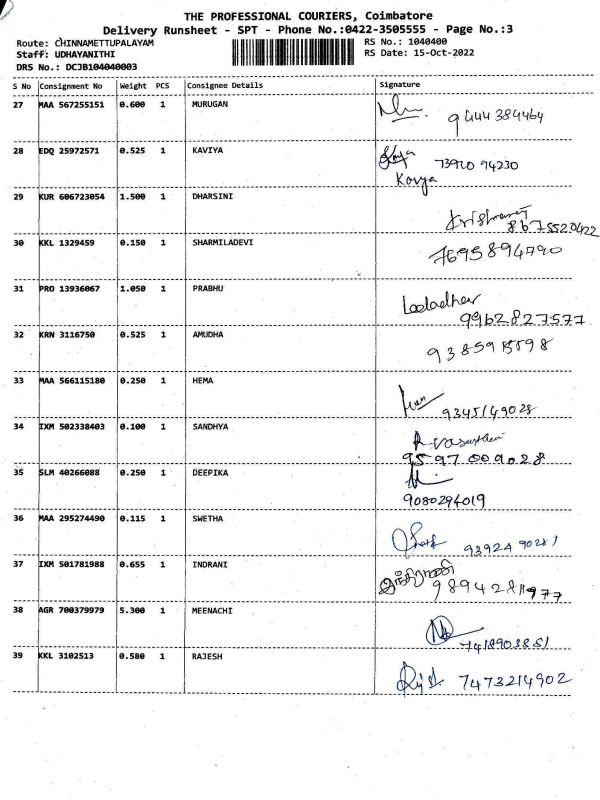 THE PROFESSIONAL COURIERS, Coimbatore
Delivery Runsheet - SPT - Phone No.:0422-3505555 - Page No.:3
Route: CHINNAMETTUPALAYAM RS No.: 1040400
Staff: UDHAYANITHI RS Date: 15-Oct-2022
DRS No.: DCJB104040003
S No Consignment No Weight PCS Consignee Details Signature
27 MAA 567255151 0.600 1 MURUGAN
9444384464
28 EDQ 25972571 0.525 1 KAVIYA
73920 94230
Kavya
29 KUR 606723054 1.500 1 DHARSINI
8675520422
30 KKL 1329459 0.150 1 SHARMILADEVI
7695894790
31 PRO 13936067 1.050 1 PRABHU
Leeladhar
9962827577
32 KRN 3116750 0.525 1 AMUDHA
33 MAA 566115180 0.250 1 HEMA
9345149028
34 IXM 502338403 0.100 1 SANDHYA
9597009028
35 SLM 40266088 0.250 1 DEEPIKA
9080294019
36 MAA 295274490 0.115 1 SWETHA
93924 90281
37 IXM 501781988 0.655 1 INDRANI
இந்திராணி
38 AGR 700379979 5.300 1 MEENACHI
7418903851
39 KKL 3102513 0.580 1 RAJESH
7473214902